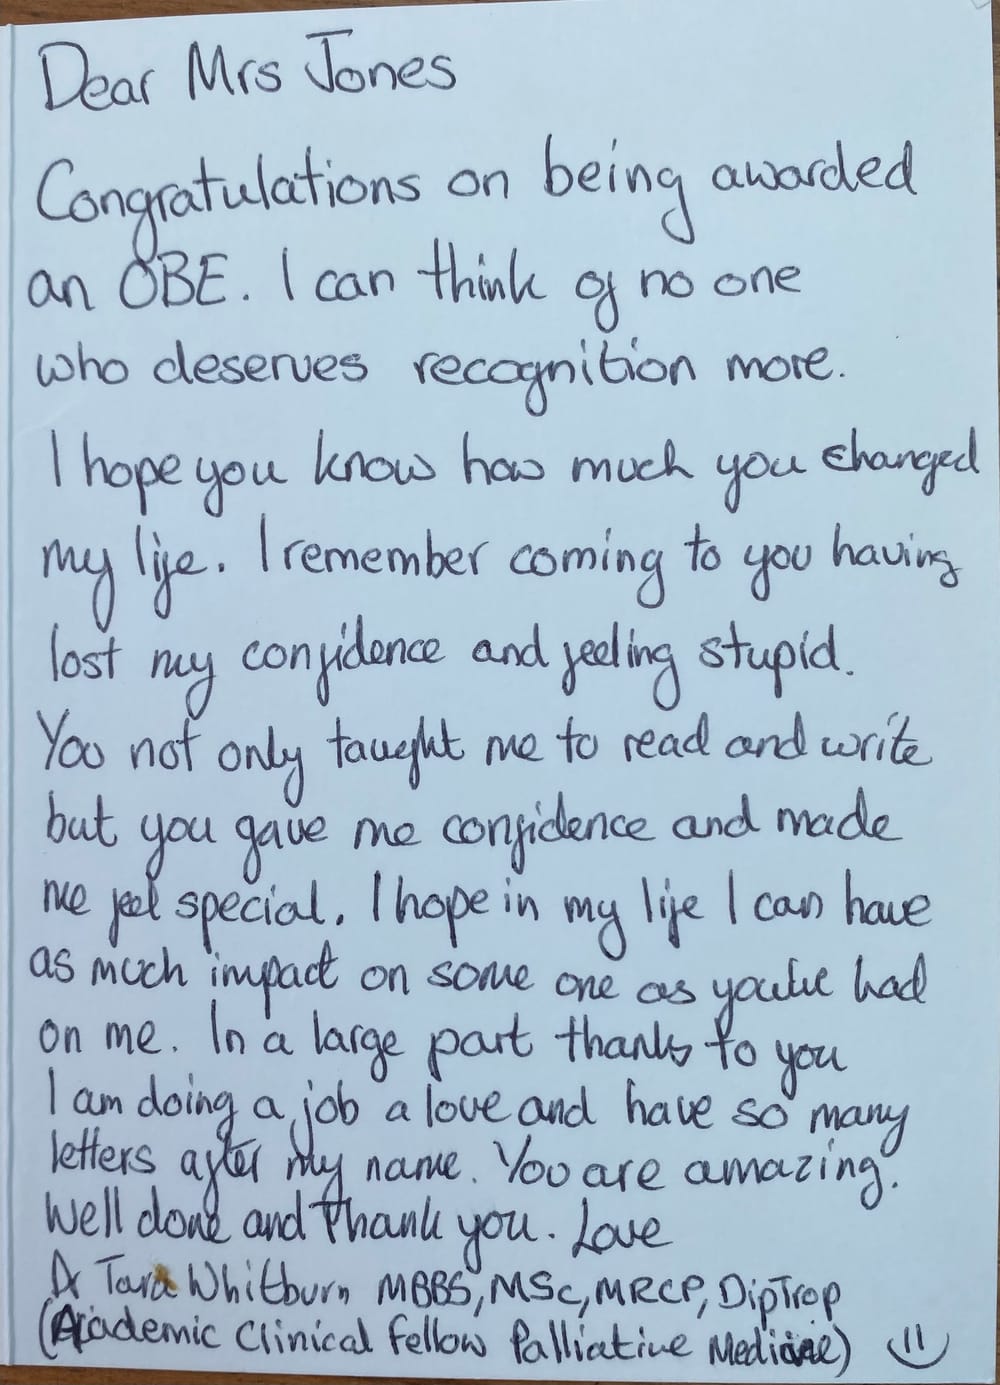 Dear Mrs Jones
Congratulations on being awarded
an OBE. I can think of no one
who deserves recognition more.
I hope you know how much you changed
my life. I remember coming to you having
lost my confidence and feeling stupid.
You not only taught me to read and write
but you gave me confidence and made
me feel special. I hope in my life I can have
as much impact on some one as you've had
on me. In a large part thanks to you
I am doing a job a love and have so many
letters after my name. You are amazing.
Well done and thank you. Love
Dr Tara Whitburn MBBS, MSc, MRCP, DipTrop
(Academic Clinical Fellow Palliative Medicine)